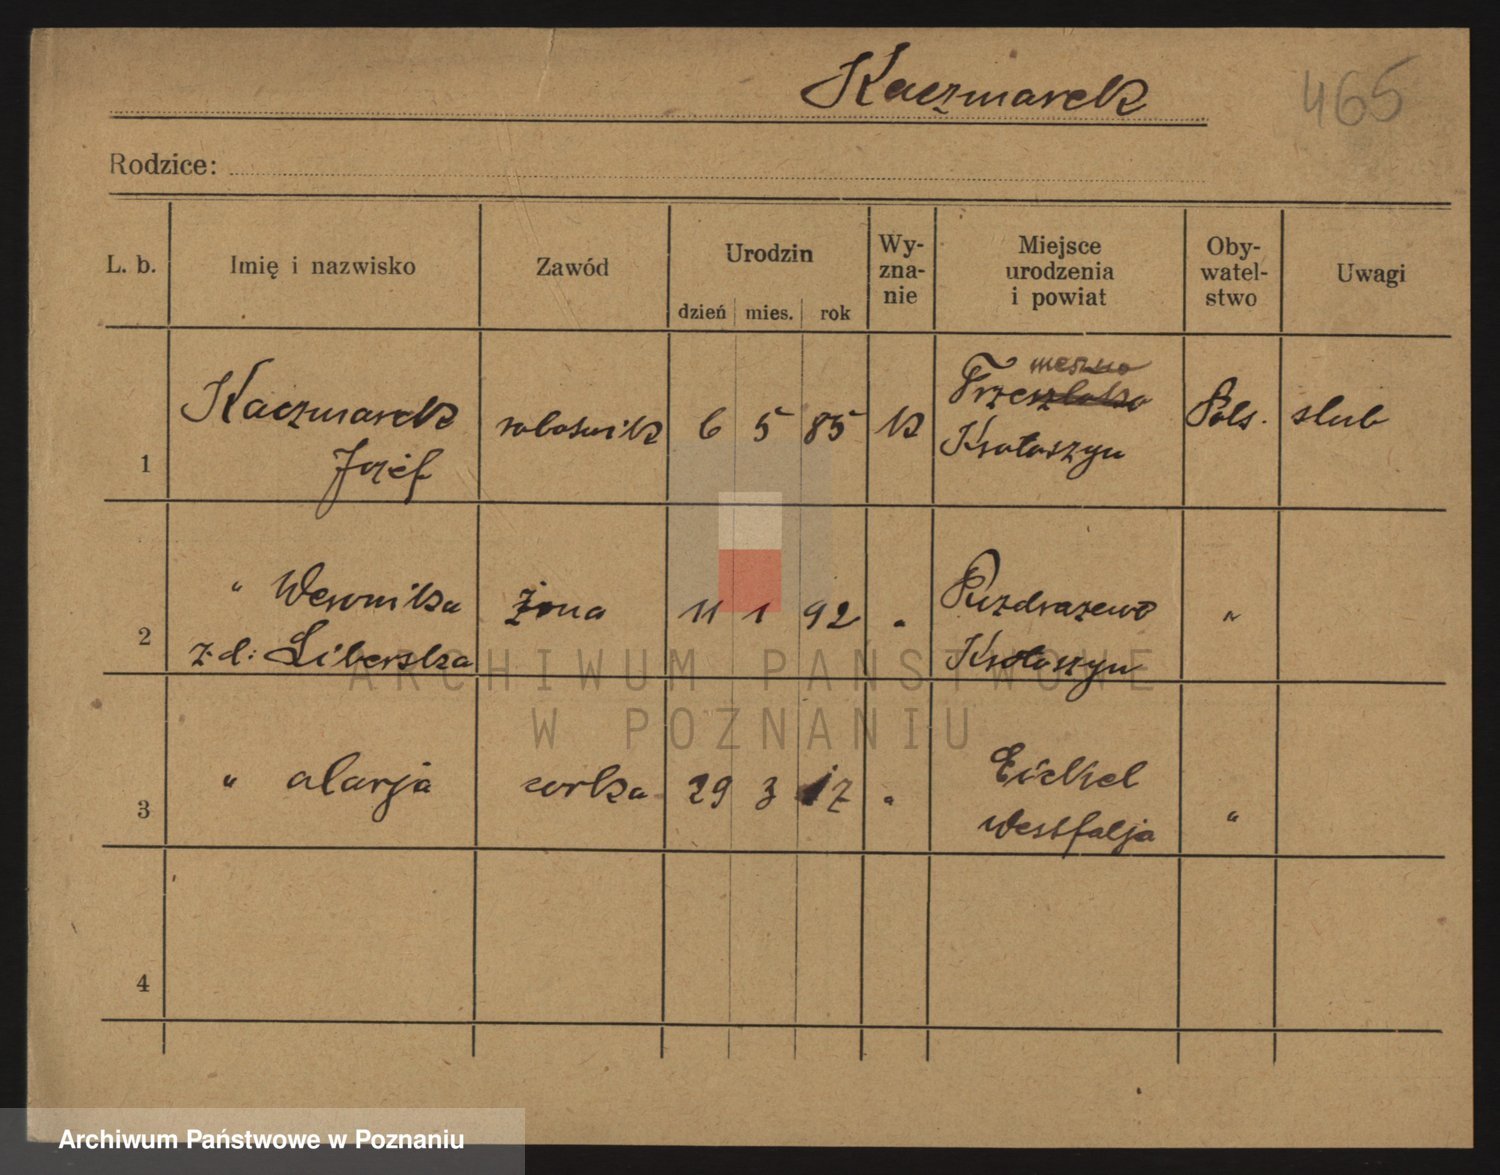 Kaczmarek
465
Rodzice:
L. b.
Imię i nazwisko
Zawód
Urodzin
dzień mies. rok
Wy-
zna-
nie
Miejsce
urodzenia
i powiat
Oby-
watel-
stwo
Uwagi
1
Kaczmarek
Józef
robotnik
6 5 85
K
Trzemeszno
Krotoszyn
Pols.
slub
2
" Weronika
z d: Liberska
żona
11 1 92
"
Rozdrażewo
Krotoszyn
"
3
" Marja
corka
29 3 17
"
Eickel
Westfalja
"
4
ARCHIWUM PAŃSTWOWE
W POZNANIU
Archiwum Państwowe w Poznaniu